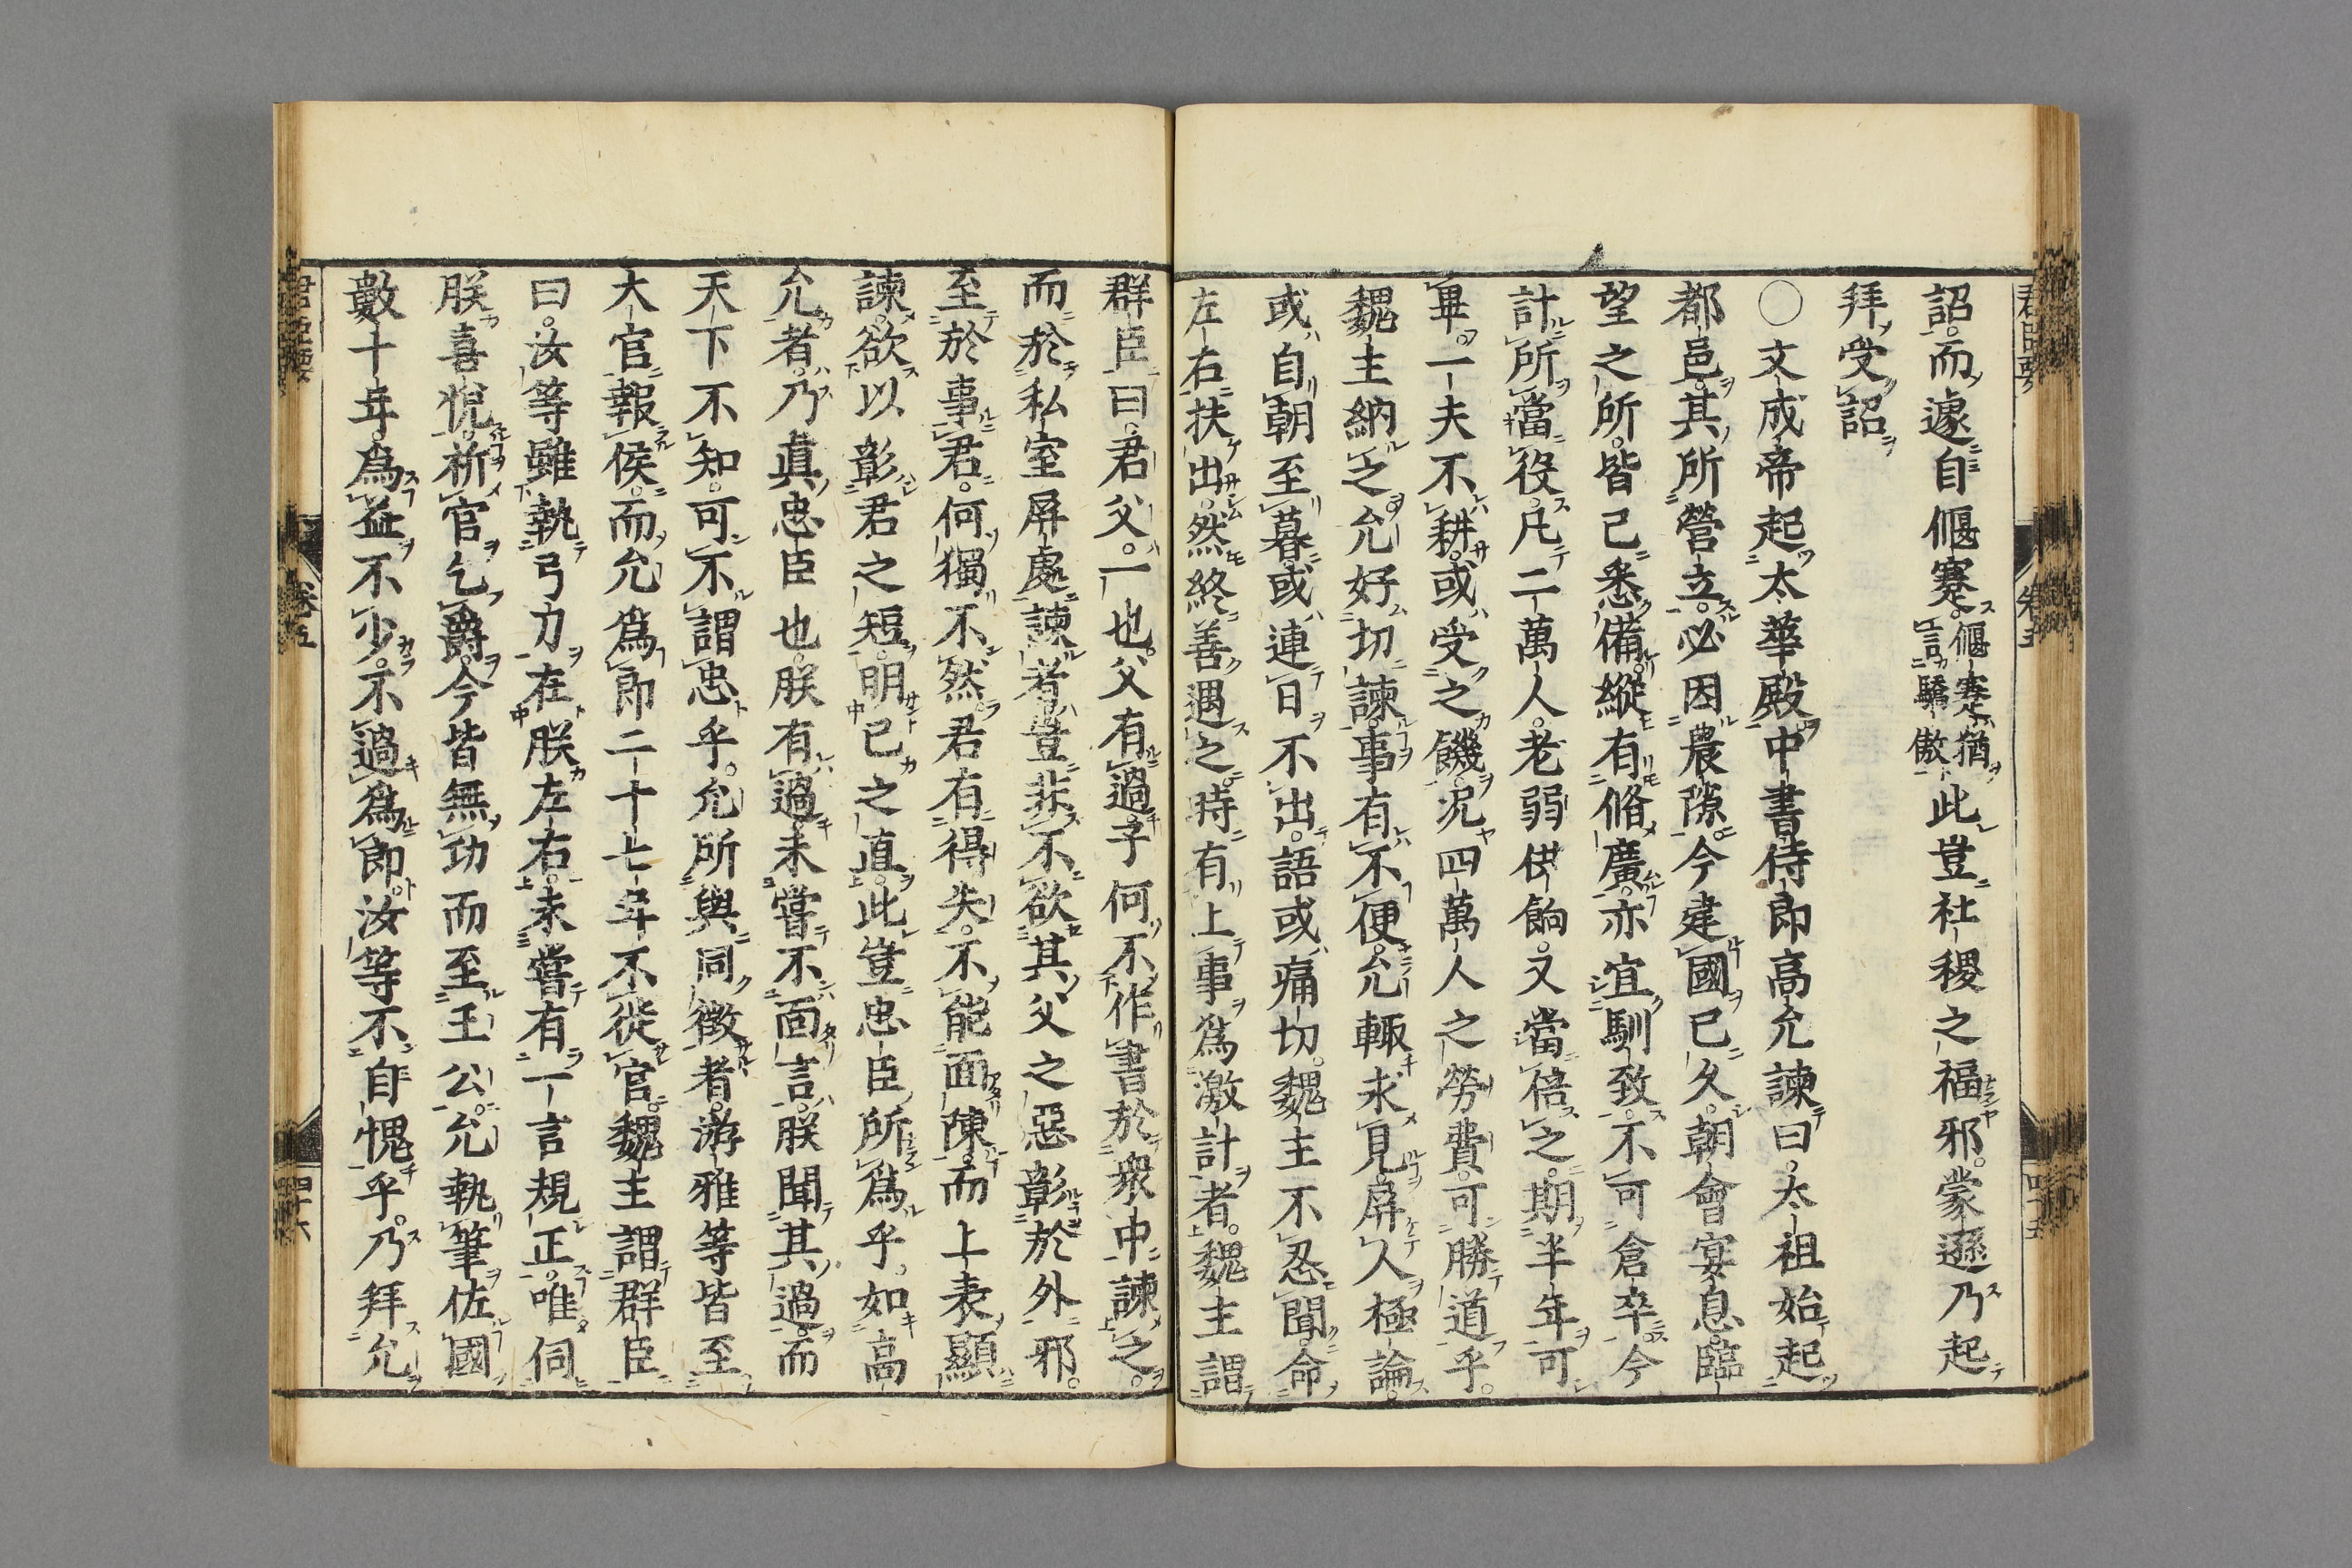 詔。而遽自偃蹇。偃蹇猶言驕傲此豈社稷之福邪。蒙遜乃起
拜受詔
○文成帝起太華殿中書侍郎高允諫曰。太祖始起
都邑。其所營立。必因農隙。今建國已久。朝會宴息。臨
望之所。皆已悉備。縱有脩廣。亦宜馴致。不可倉卒。今
計所當役。凡二萬人。老弱供餉。又當倍之。期半年可
畢。一夫不耕。或受之饑。况四萬人之勞費。可勝道乎。
魏主納之。允好切諫。事有不便。允輙求見屏人極論。
或自朝至暮。或連日不出。語或痛切。魏主不忍聞。命
左右扶出。然終善遇之。時有上事爲激計者。魏主謂
群臣曰。君父。一也。父有過。子何不作書於衆中諫之。
而於私室屏處諫者。豈非不欲其父之惡彰於外邪。
至於事君。何獨不然。君有得失。不能面陳。而上表顯
諫。欲以彰君之短。明己之直。此豈忠臣所爲乎。如高
允者。乃眞忠臣也。朕有過。未嘗不面言。朕聞其過。而
天下不知。可不謂忠乎。允所與同徴者。游雅等皆至
大官報侯。而允爲郎二十七年不徙官。魏主謂群臣
曰。汝等雖執弓刀在朕左右。未嘗有一言規正。唯伺
朕喜悅。祈官乞爵。今皆無功而至王公。允執筆佐國
數十年。爲益不少。不過爲郎。汝等不自愧乎。乃拜允
卷五
四十五
君臣要
卷五
四十六